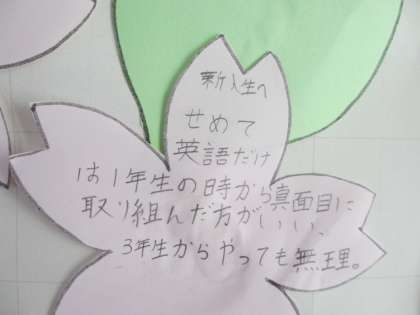 新入生へ
せめて
英語だけ
は1年生の時から真面目に
取り組んだ方がいい、
3年生からやっても無理。